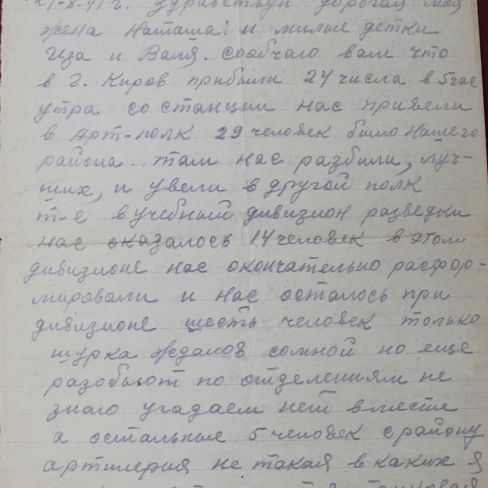 Здраствуй дорогая моя
жена Наташа! и милые детки
Иза и Валя. сообчаю вам что
в г. Киров прибыли 24 числа в 5 час
утра со станции нас привели
в Арт-полк 29 человек было Нашего
района. там нас разбили, луч-
ших, и увели в другой полк
т-е в учебный дивизион разведки
нас оказалось 14 человек в этом
дивизионе нас окончательно расфор-
мировали и нас осталось при
дивизионе шесть человек только
шурка жданов сомной но еще
разобьют по отделениям не
знаю угадаем нет вместе
а остальные 5 человек с району
артилерия не такая в каких я